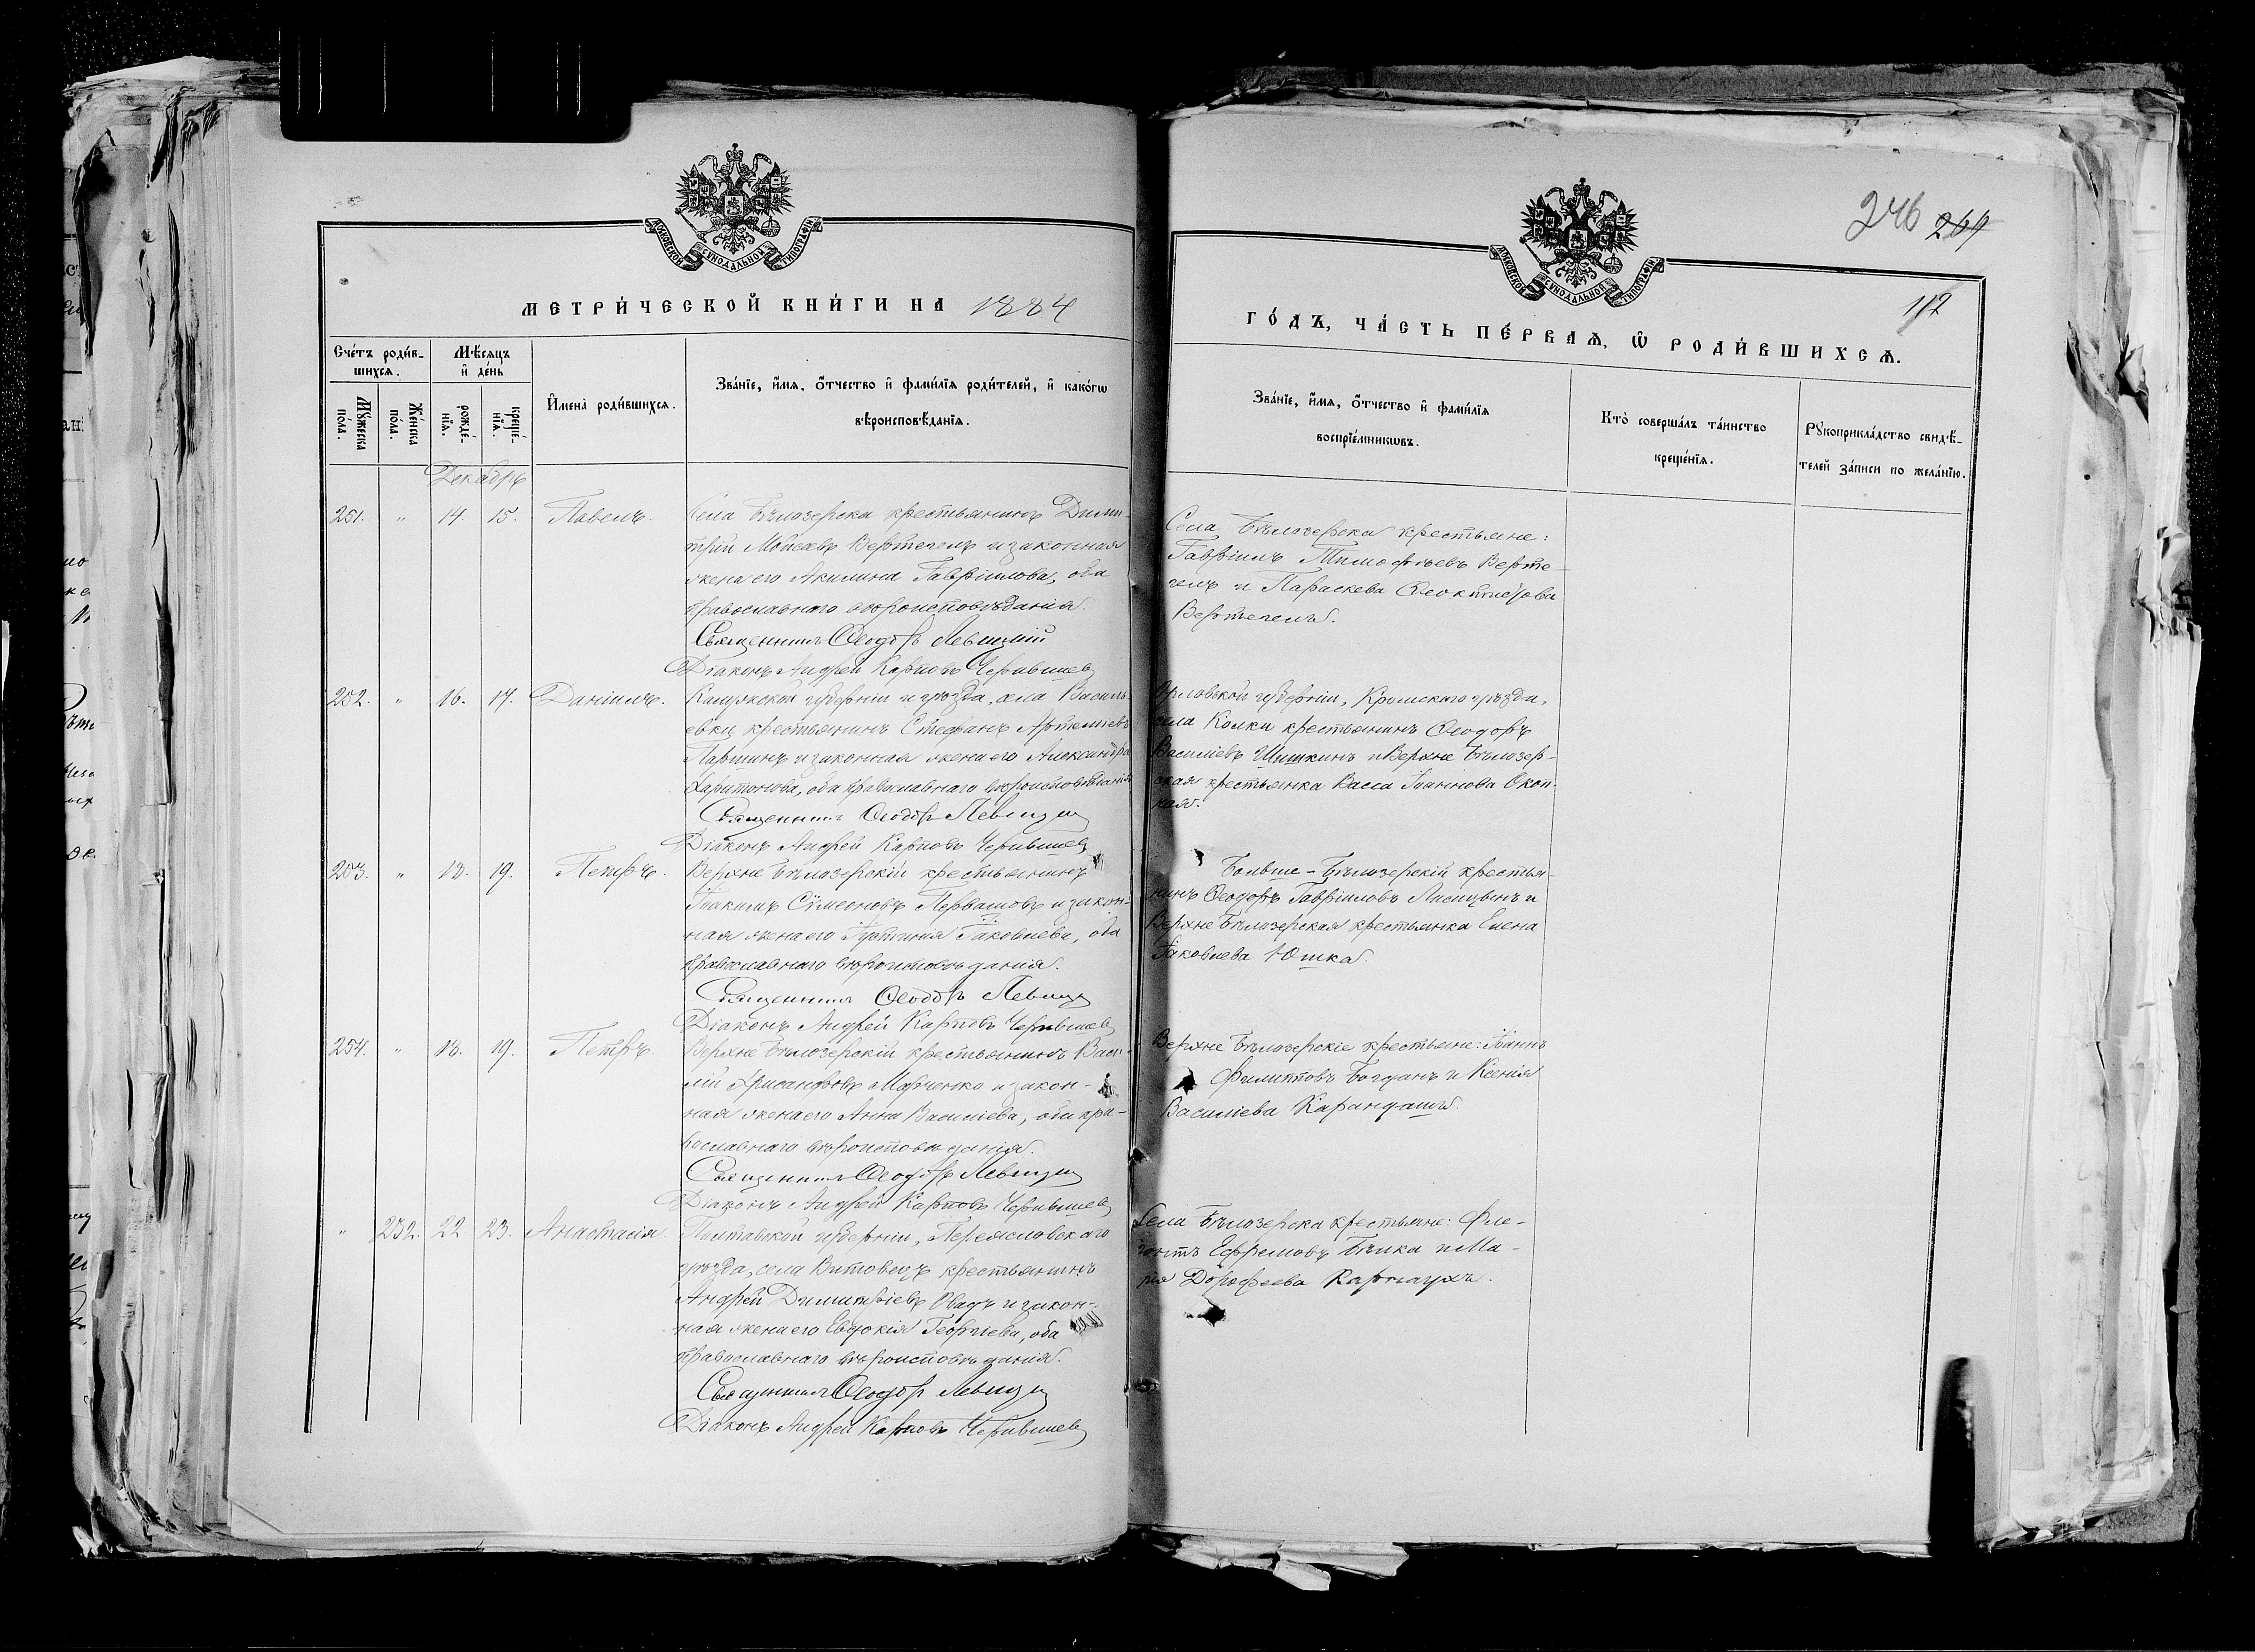 МОСКОВСКОЙ СѴНОДАЛЬНОЙ ТИПОГРАФІИ
МЕТРИ́ЧЕСКОЙ КНИ́ГИ НА 1884
Сче́тъ роди́в-
шихся.
Мѣ́сяцъ
и҆ де́нь
Мꙋ́жеска
по́ла.
Же́нска
по́ла.
рожде́-
нїя.
креще́-
нїя.
И҆мена̀ роди́вшихся.
Зва́нїе, и҆́мя, ѻ҆́тчество и҆ фами́лїя роди́телей, и҆ како́гѡ
вѣроисповѣ́данїя.
Декабрь
251. " 14. 15. Павелъ.
Села Бѣлозерки крестьянинъ Дими-
трій Моисеевъ Вертегелъ и законная
жена его Акилина Гавріилова, оба
православнаго вѣроисповѣданія.
Священникъ Ѳеодоръ Левицкій
Діаконъ Андрей Карповъ Чернышев
252. " 16. 17. Даніилъ.
Калужской губерніи и уѣзда, села Василь-
евки крестьянинъ Стефанъ Артемьевъ
Паршинъ и законная жена его Александра
Харитонова, оба православнаго вѣроисповѣданія
Священникъ Ѳеодоръ Левицкій
Діаконъ Андрей Карповъ Чернышев
253. " 18. 19. Петръ.
Верхне Бѣлозерскій крестьянинъ
Іоакимъ Сѵмеоновъ Первашовъ и закон-
ная жена его Іустинія Іаковлева, оба
православнаго вѣроисповѣданія.
Священникъ Ѳеодоръ Левицкій
Діаконъ Андрей Карповъ Чернышев
254. " 18. 19. Петръ.
Верхне Бѣлозерскій крестьянинъ Васи-
лій Хрисанфовъ Марченко и закон-
ная жена его Анна Василіева, оба пра-
вославнаго вѣроисповѣданія.
Священникъ Ѳеодоръ Левицкій
Діаконъ Андрей Карповъ Чернышев
" 232. 22 23. Анастасія.
Полтавской губерніи, Переяславскаго
уѣзда, села Витовецъ крестьянинъ
Андрей Димитріевъ и закон-
ная жена его Евдокія Георгіева, оба
православнаго вѣроисповѣданія.
Священникъ Ѳеодоръ Левицкій
Діаконъ Андрей Карповъ Чернышев
246 269
112
МОСКОВСКОЙ СѴНОДАЛЬНОЙ ТИПОГРАФІИ
ГО́ДЪ, ЧА́СТЬ ПЕ́РВАЯ, Ѡ҆ РОДИ́ВШИХСЯ.
Зва́нїе, и҆́мя, ѻ҆́тчество и҆ фами́лїя
воспрїе́мникѡвъ.
Кто̀ соверша́лъ та́инство
креще́нїя.
Рꙋкоприкла́дство свидѣ́-
телей за́писи по жела́нїю.
Села Бѣлозерки крестьяне:
Гавріилъ Тимоѳѣевъ Верте-
гелъ и Параскева Ѳеоктистова
Вертегелъ.
Орловской губерніи, Кромскаго уѣзда,
села Колки крестьянинъ Ѳеодоръ
Василіевъ Шишкинъ и Верхне Бѣлозер-
ская крестьянка Васса Іоаннова Окоп-
ная.
Больше-Бѣлозерскій крестья-
нинъ Ѳеодоръ Гавріиловъ Лисицынъ и
Верхне Бѣлозерская крестьянка Елена
Іаковлева Юшка.
Верхне Бѣлозерскіе крестьяне: Іоаннъ
Филипповъ Богданъ и Ксенія
Василіева Карандашъ.
Села Бѣлозерки крестьяне: Фле-
гонтъ Ефремовъ Бѣлка и Ма-
рія Дороѳеева Карнаухъ.